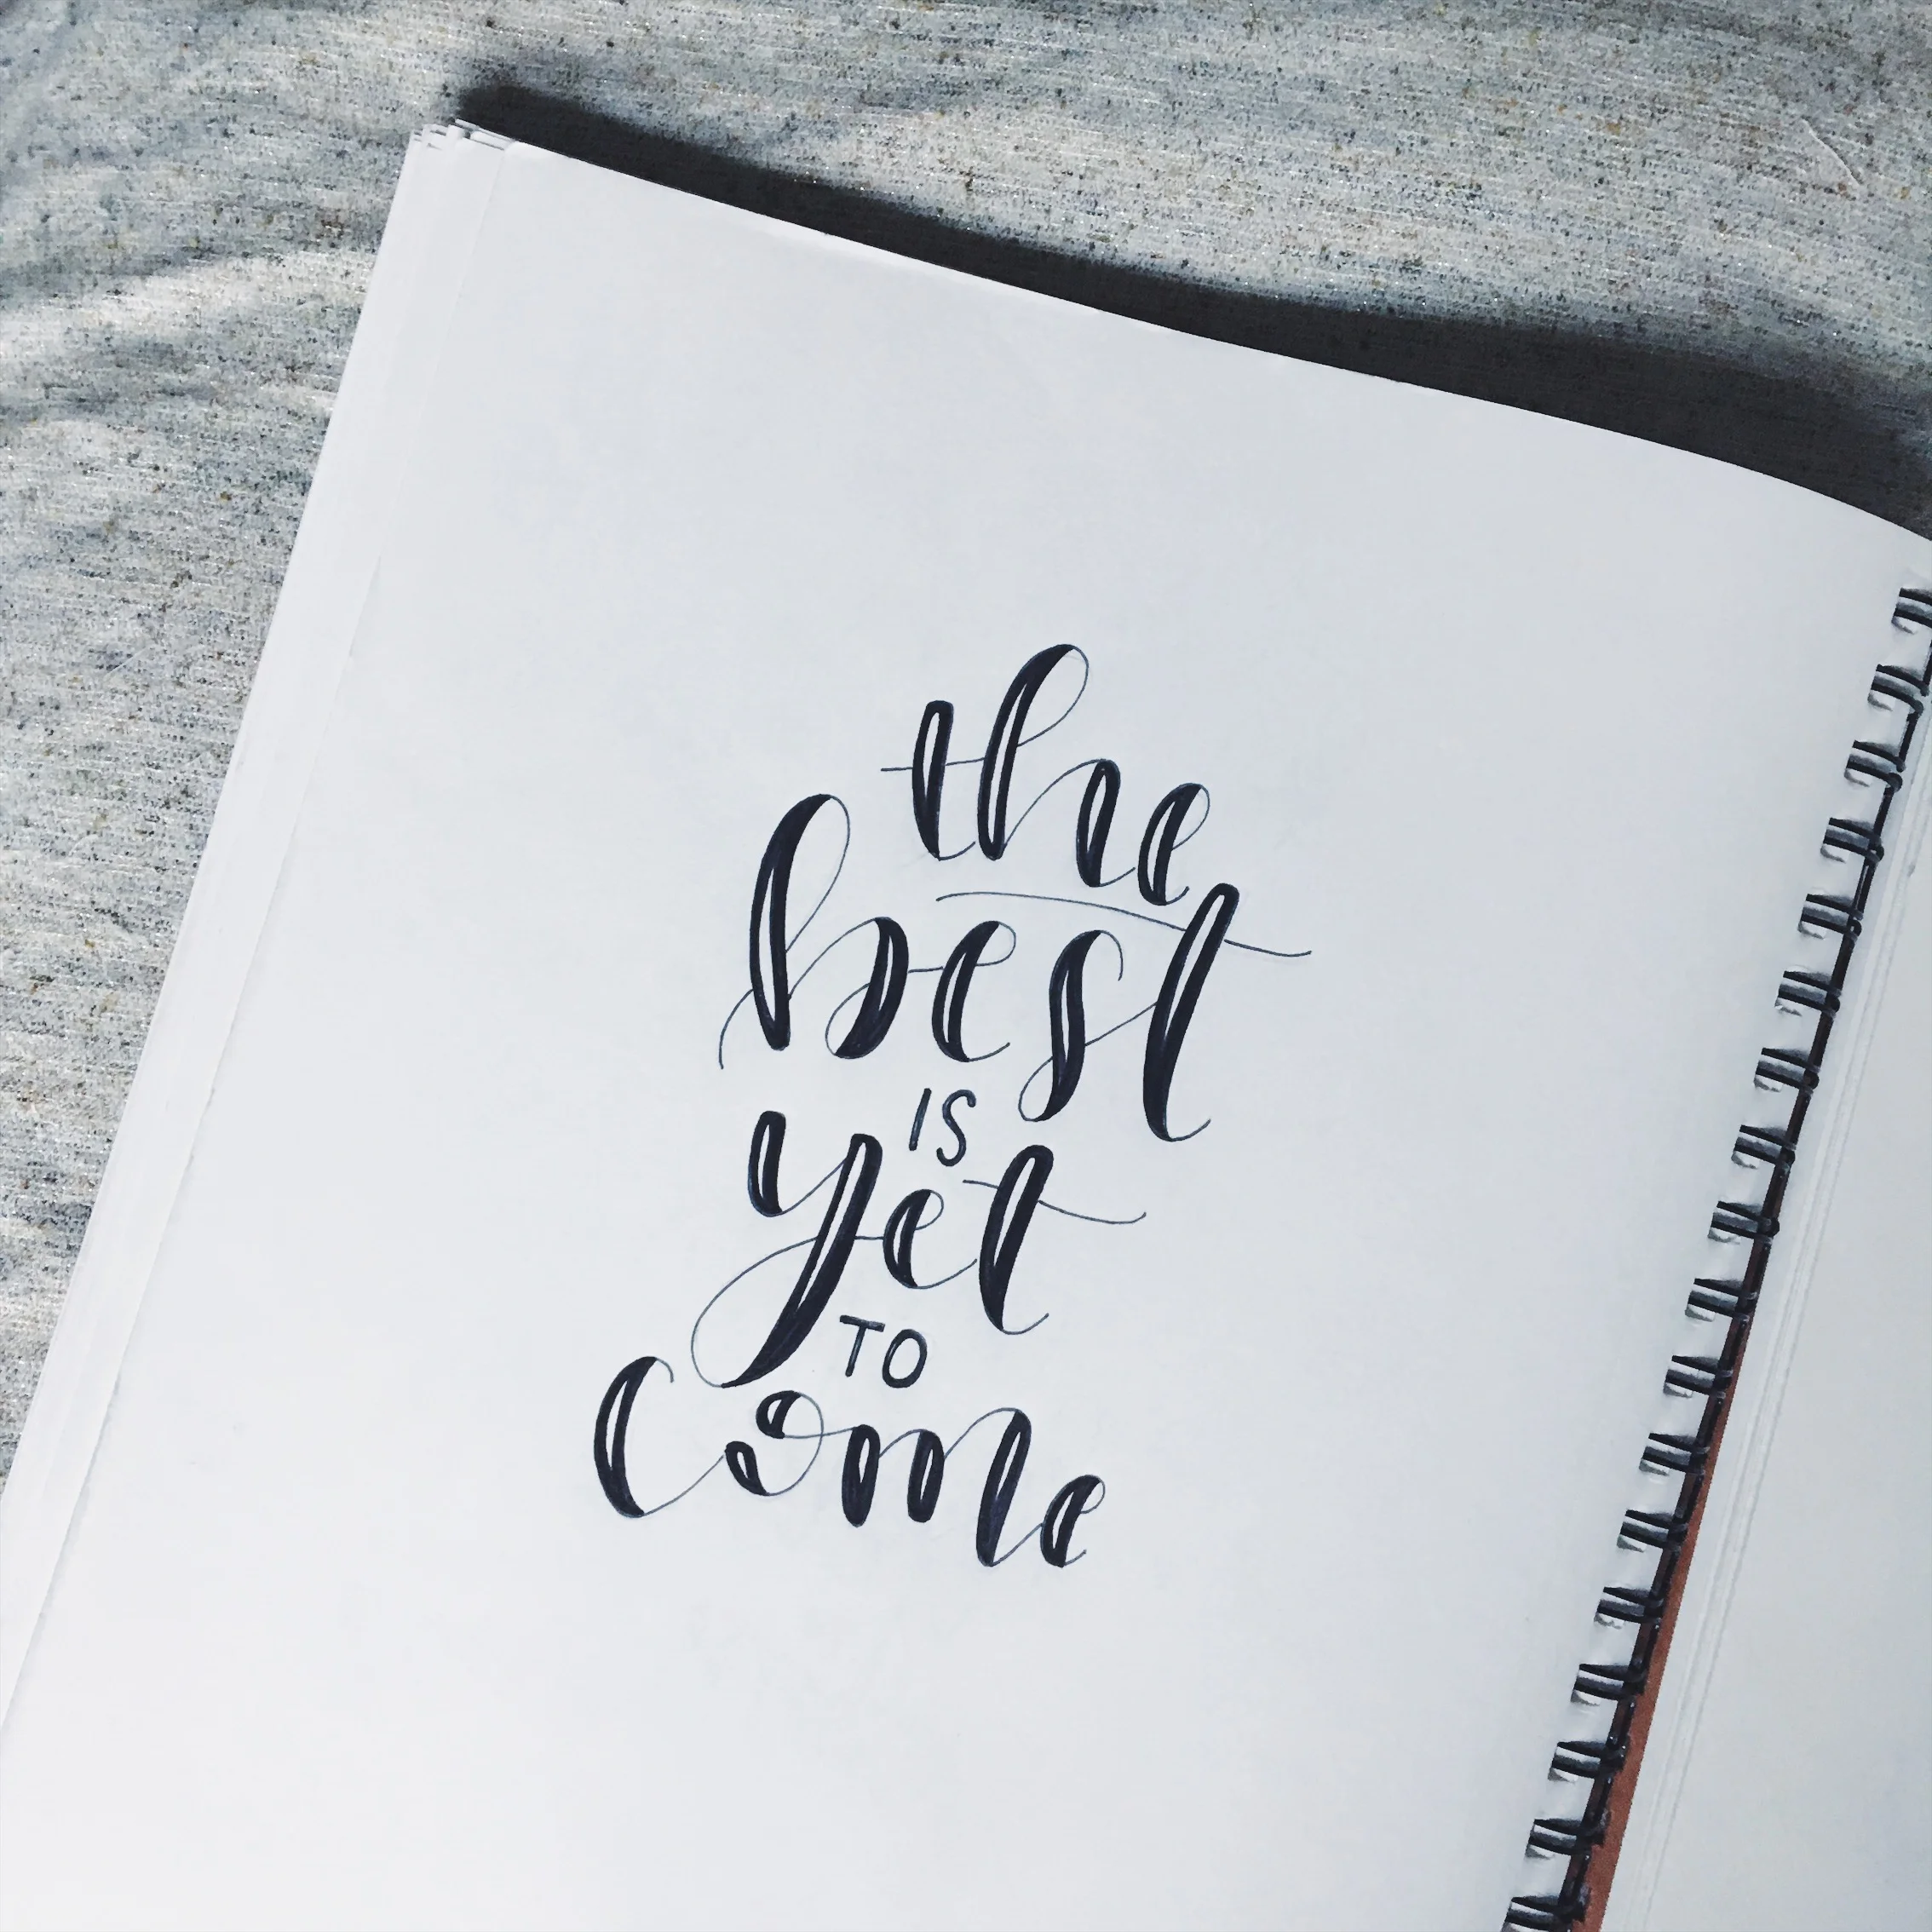 the
best
IS
yet
TO
come